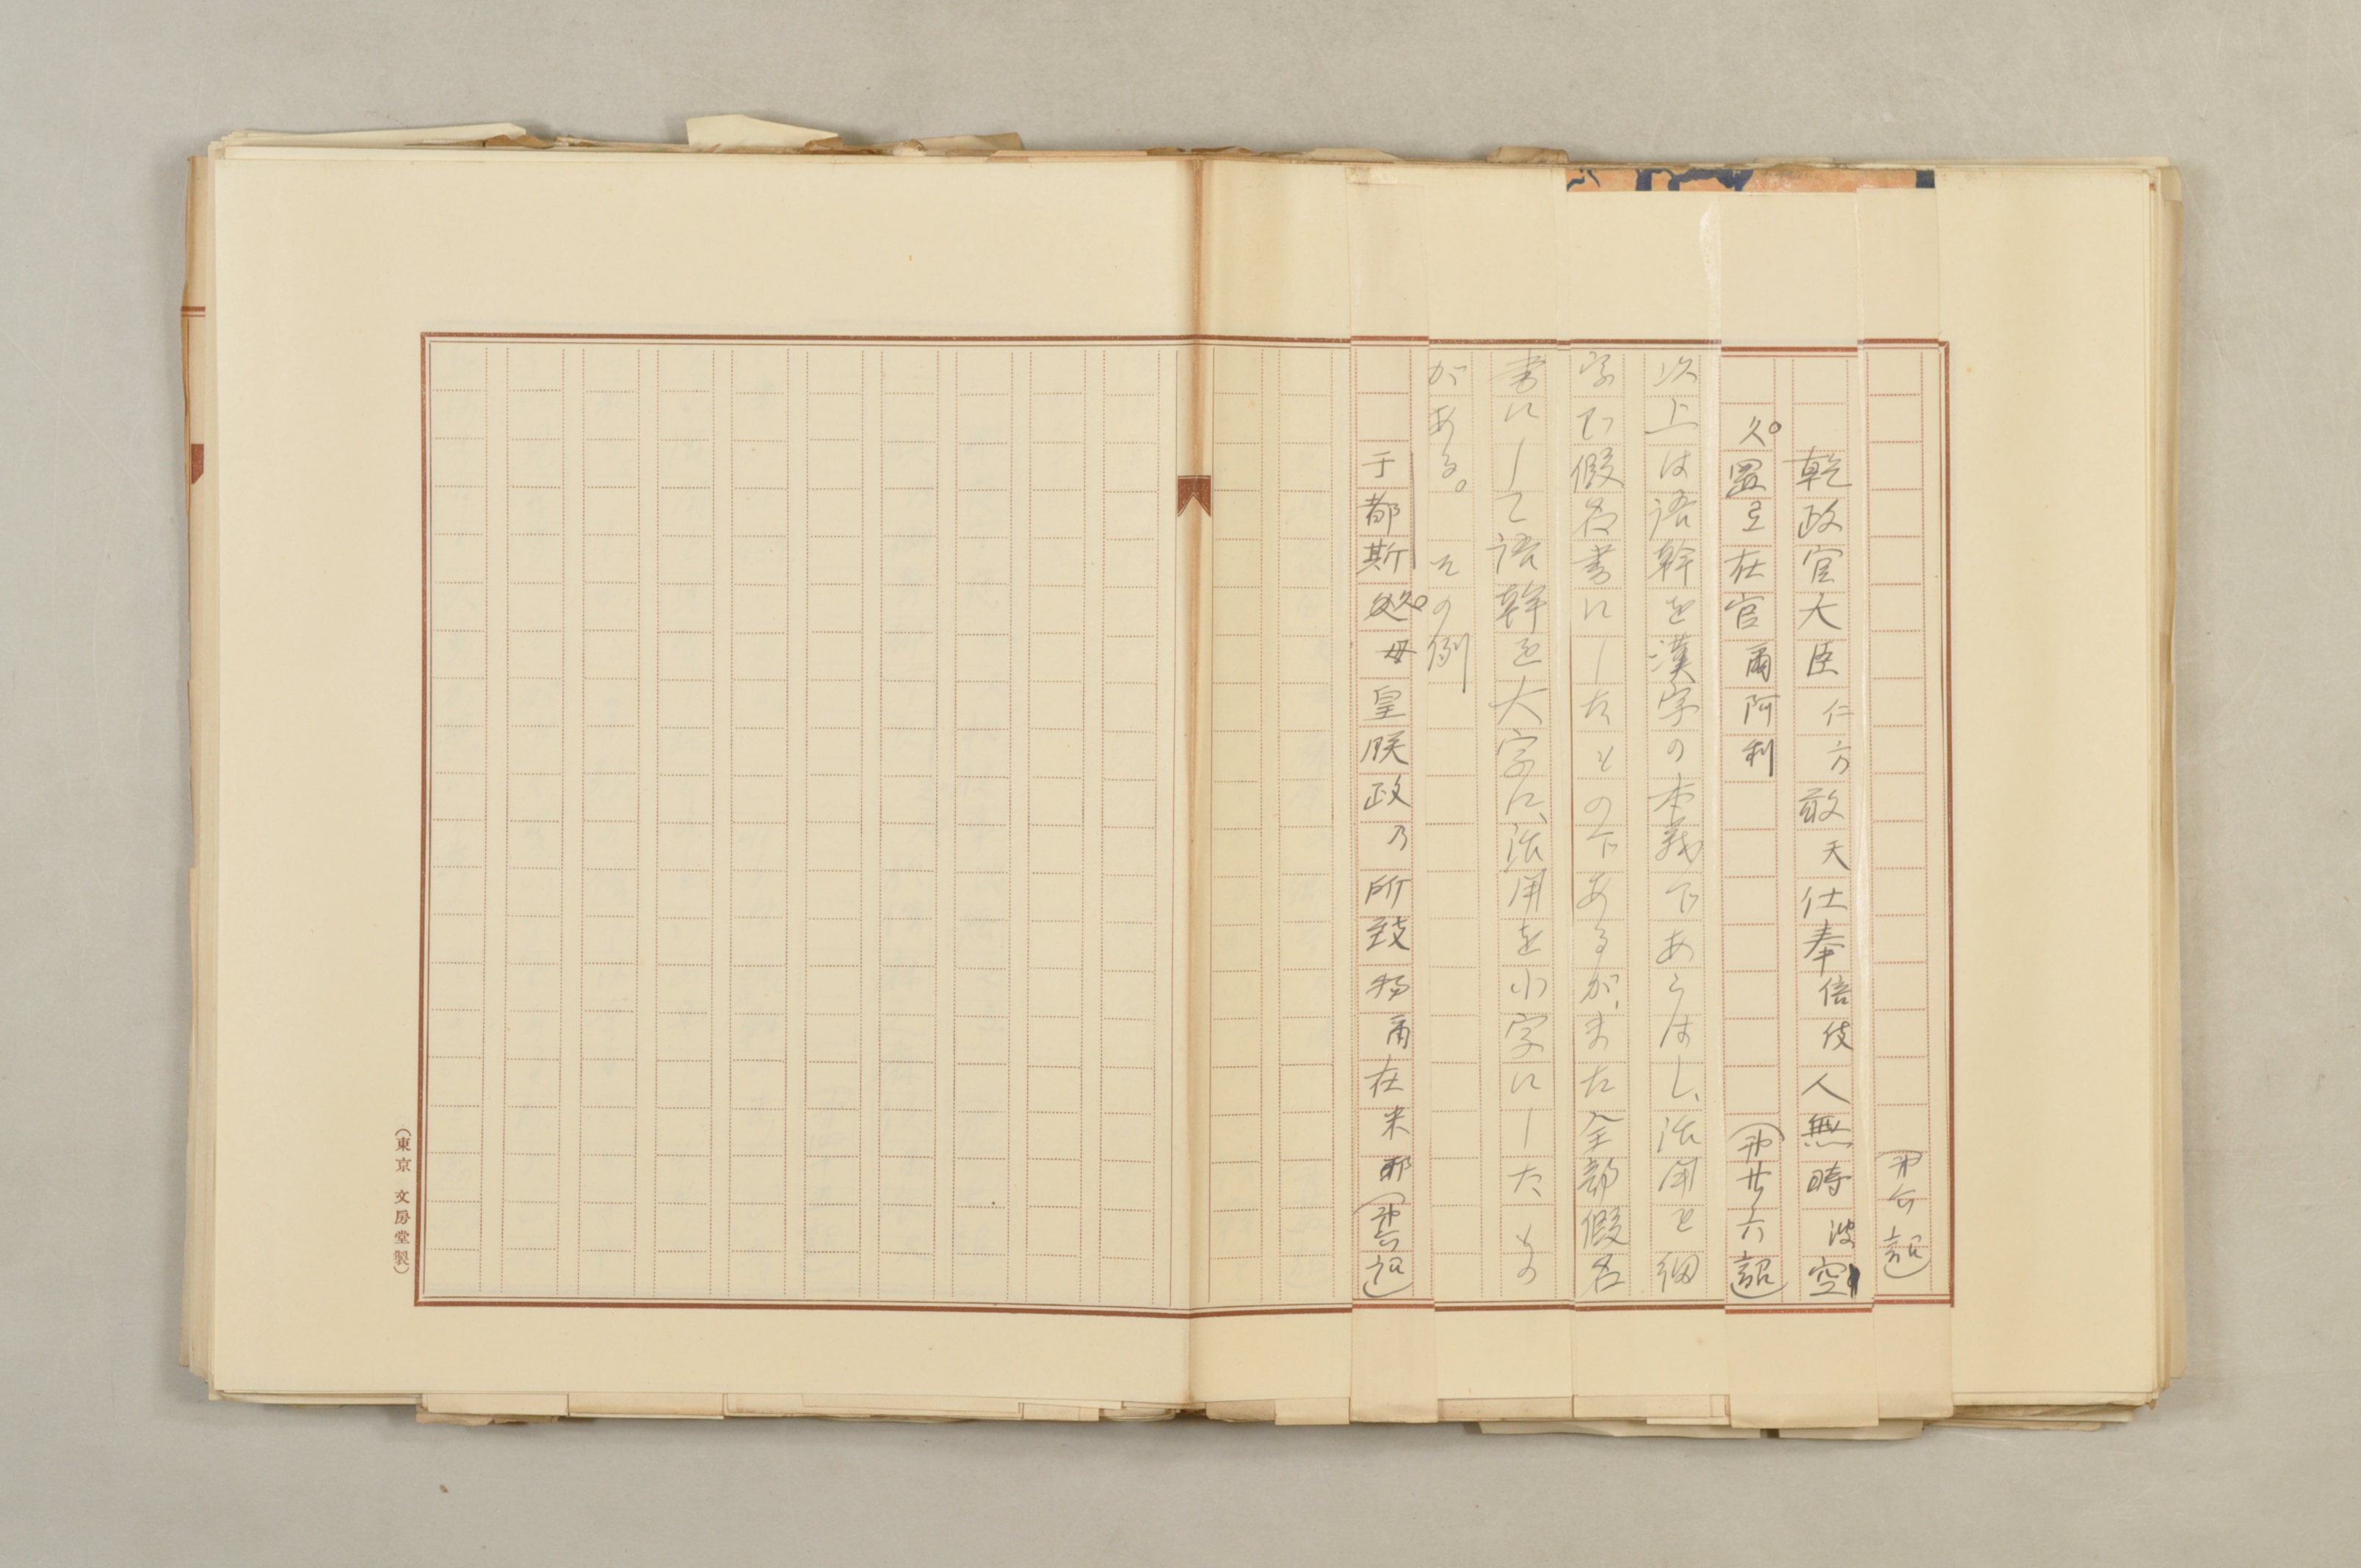 乾政官大臣仁方敢天仕奉倍伎人無時波空
久置弖在官爾阿利 (第廿六詔)
以上は語幹を漢字の本義であらはし、活用を細
字で假名書にしたもの下あるが、また全部假名
書にして語幹を大字に、活用を小字にしたもの
がある。その例
于都斯久母皇朕政乃所致物爾在米耶
(東京 文房堂製)